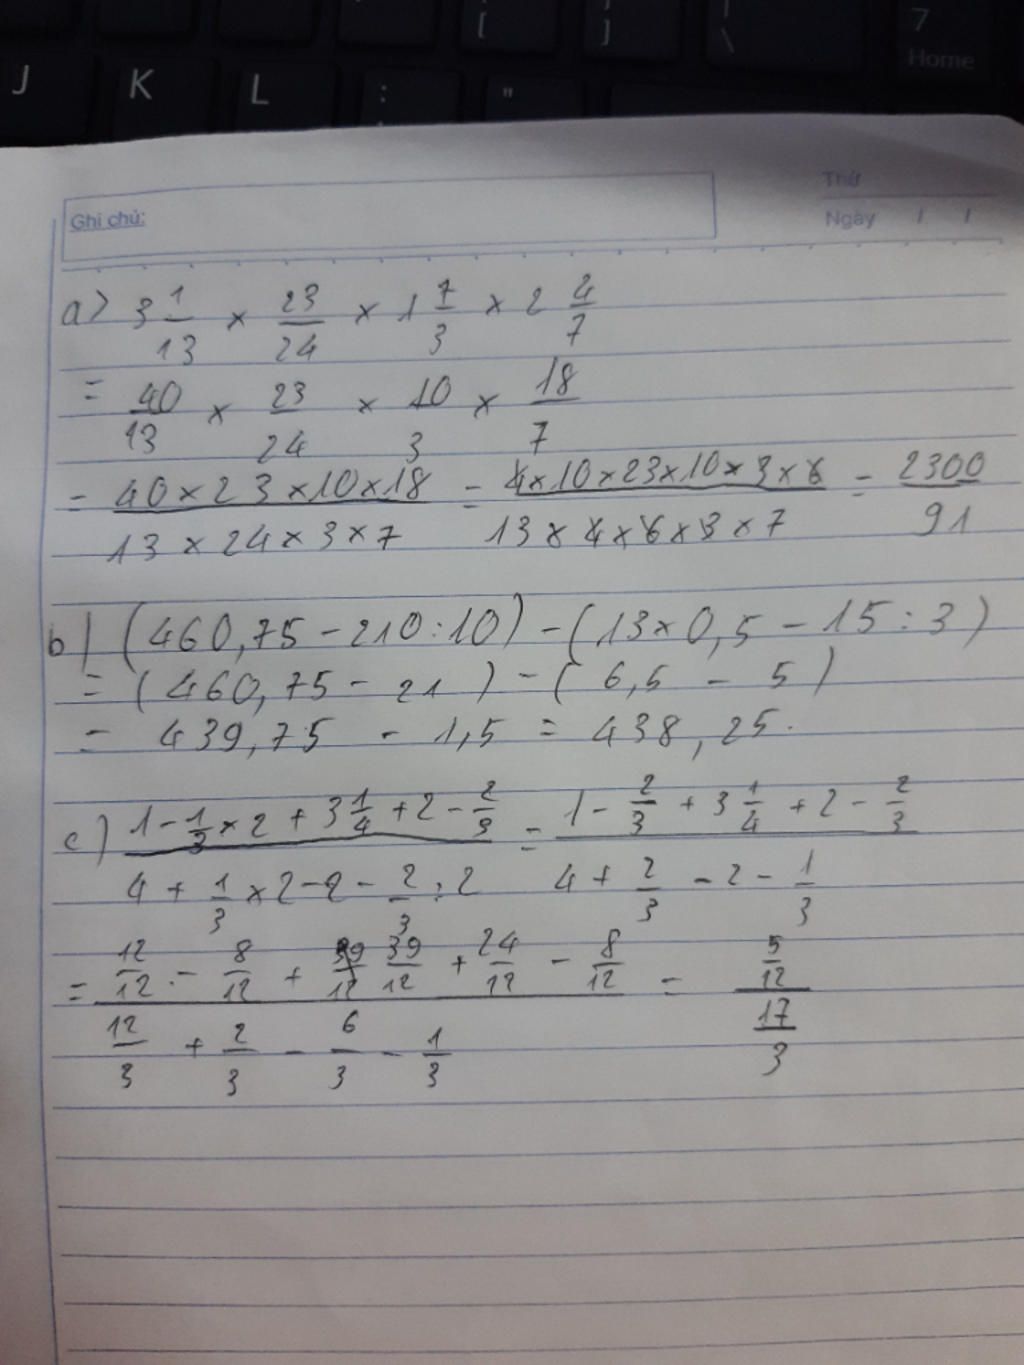 [ ] \ 7 Home
J K L : ; "
Thứ
Ghi chú:
Ngày / /
a) 3 1/13 × 23/24 × 1 7/3 × 2 4/7
= 40/13 × 23/24 × 10/3 × 18/7
= (40×23×10×18)/(13×24×3×7) = (4×10×23×10×3×6)/(13×4×6×3×7) = 2300/91
b) (460,75 - 210:10) - (13×0,5 - 15:3)
= (460,75 - 21) - (6,5 - 5)
= 439,75 - 1,5 = 438,25.
c) (1 - 1/3 × 2 + 3 1/4 + 2 - 2/3)/(4 + 1/3 × 2 - 2 - 2/3 : 2) = (1 - 2/3 + 3 1/4 + 2 - 2/3)/(4 + 2/3 - 2 - 1/3)
= (12/12 - 8/12 + 39/12 + 24/12 - 8/12)/(12/3 + 2/3 - 6/3 - 1/3) = (5/12)/(17/3)